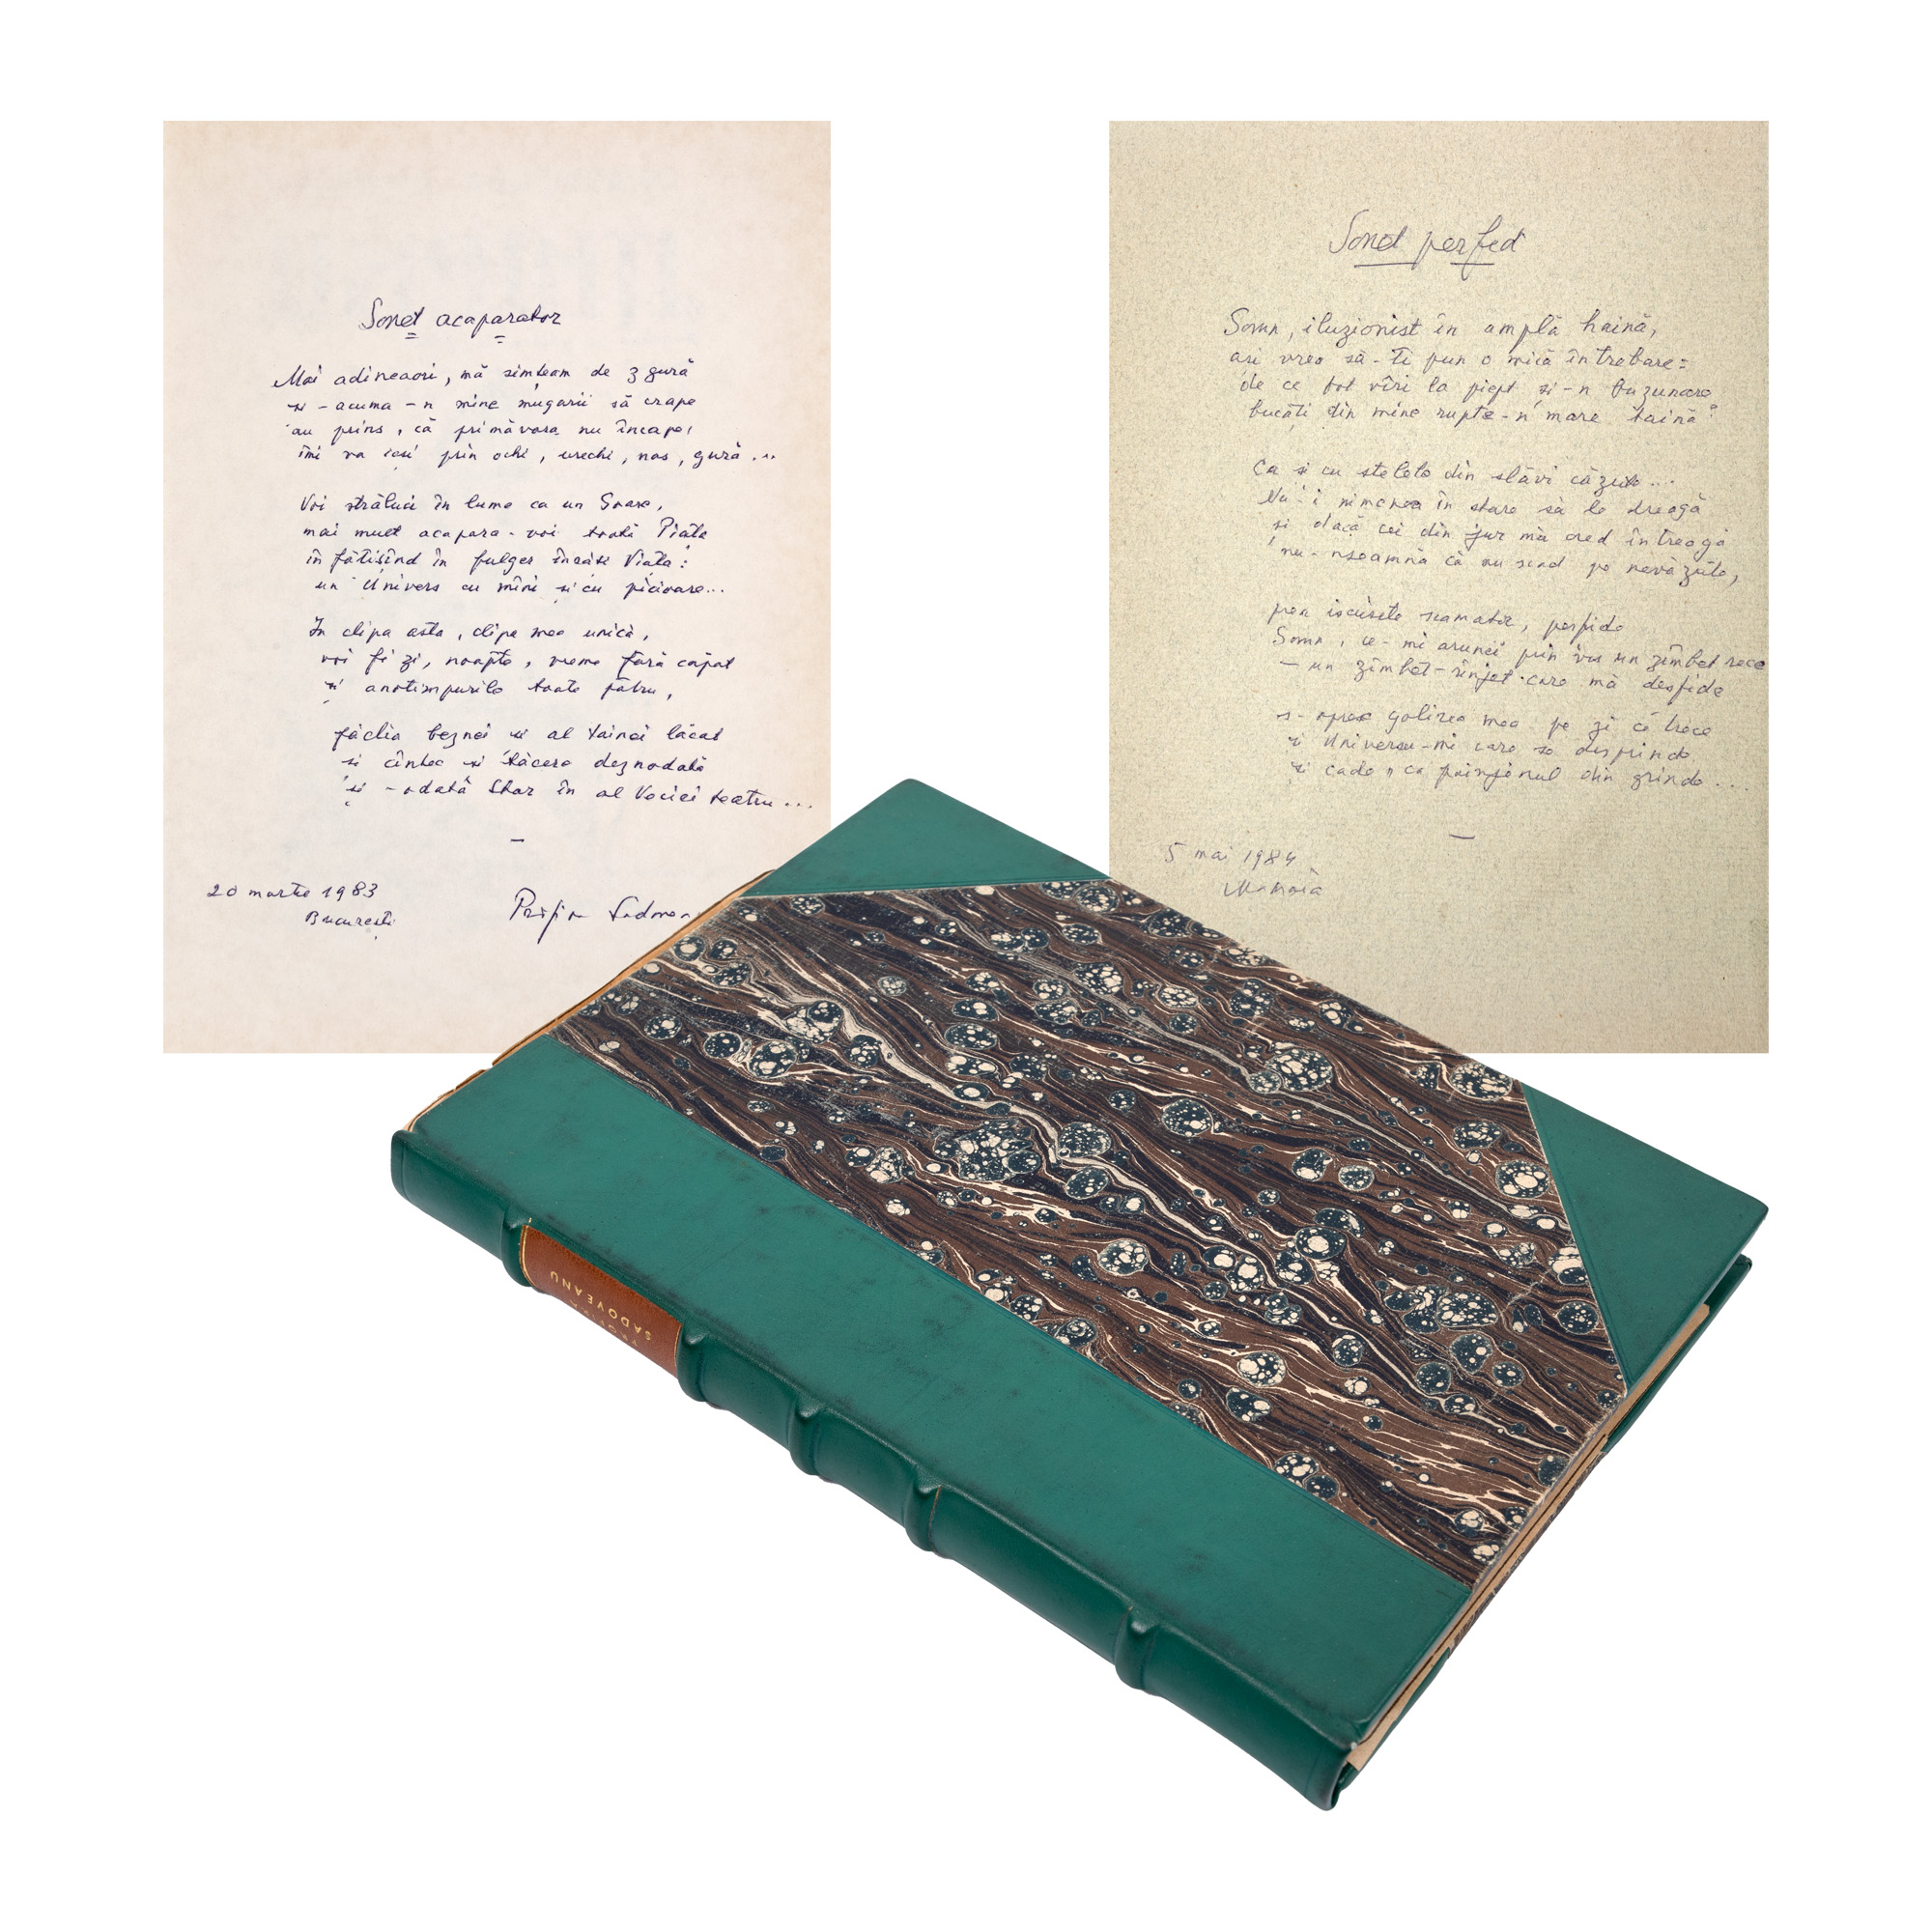 Sonet acaparator
Mai adineaori, mă simțeam de zgură
și-acuma-n mine mugurii să crape
au prins, că primăvara nu încape,
îmi va ieși prin ochi, urechi, nas, gură...
Voi străluci în lume ca un Soare,
mai mult acapara-voi toată Piața
înfățișînd în fulger însăși Viața:
un Univers cu mîini și cu picioare...
În clipa asta, clipa mea unică,
voi fi zi, noapte, vreme fără capăt
și anotimpurile toate patru,
făclia beznei și al tainei lăcat
și cîntec și tăcere deznodată
și-odată Star în al Veciei teatru...
20 martie 1983
București
Profira Sadovean
Sonet perfect
Somn, iluzionist în amplă haină,
ași vrea să-ți pun o mică întrebare:
de ce tot vîri la piept și-n buzunare
bucăți din mine rupte-n mare taină?
Ca și cu stelele din slăvi căzute...
Nu-i nimenea în stare să le dreagă
și dacă cei din jur mă cred întreagă
nu-nseamnă că nu scad pe nevăzute,
prea iscusite scamator, perfide
Somn, ce-mi arunci prin vis un zîmbet rece
– un zîmbet-rînjet care mă desfide
s-opresc golirea mea pe zi ce trece
și Universu-mi care se desprinde
și cade, ca painjenul din grinde...
5 mai 1984
SADOVEANU